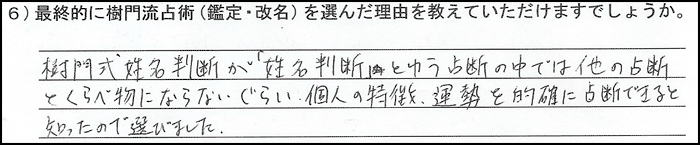 6）最終的に樹門流占術（鑑定・改名）を選んだ理由を教えていただけますでしょうか。
樹門式姓名判断が「姓名判断」とゆう占断の中では他の占断
とくらべ物にならないぐらい、個人の特徴、運勢を的確に占断できると
知ったので選びました.